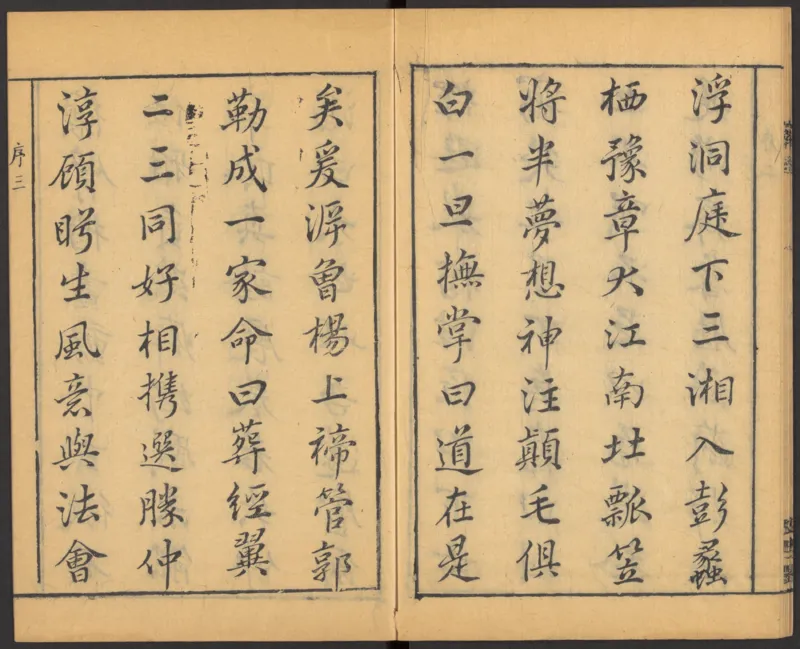 浮洞庭下三湘入彭蠡
栖豫章大江南北瓢笠
将半夢想神注顛毛俱
白一旦撫掌曰道在是
矣爰泝曾楊上禘管郭
勒成一家命曰葬經翼
二三同好相携選勝仲
淳顧盻生風意與法會
序三